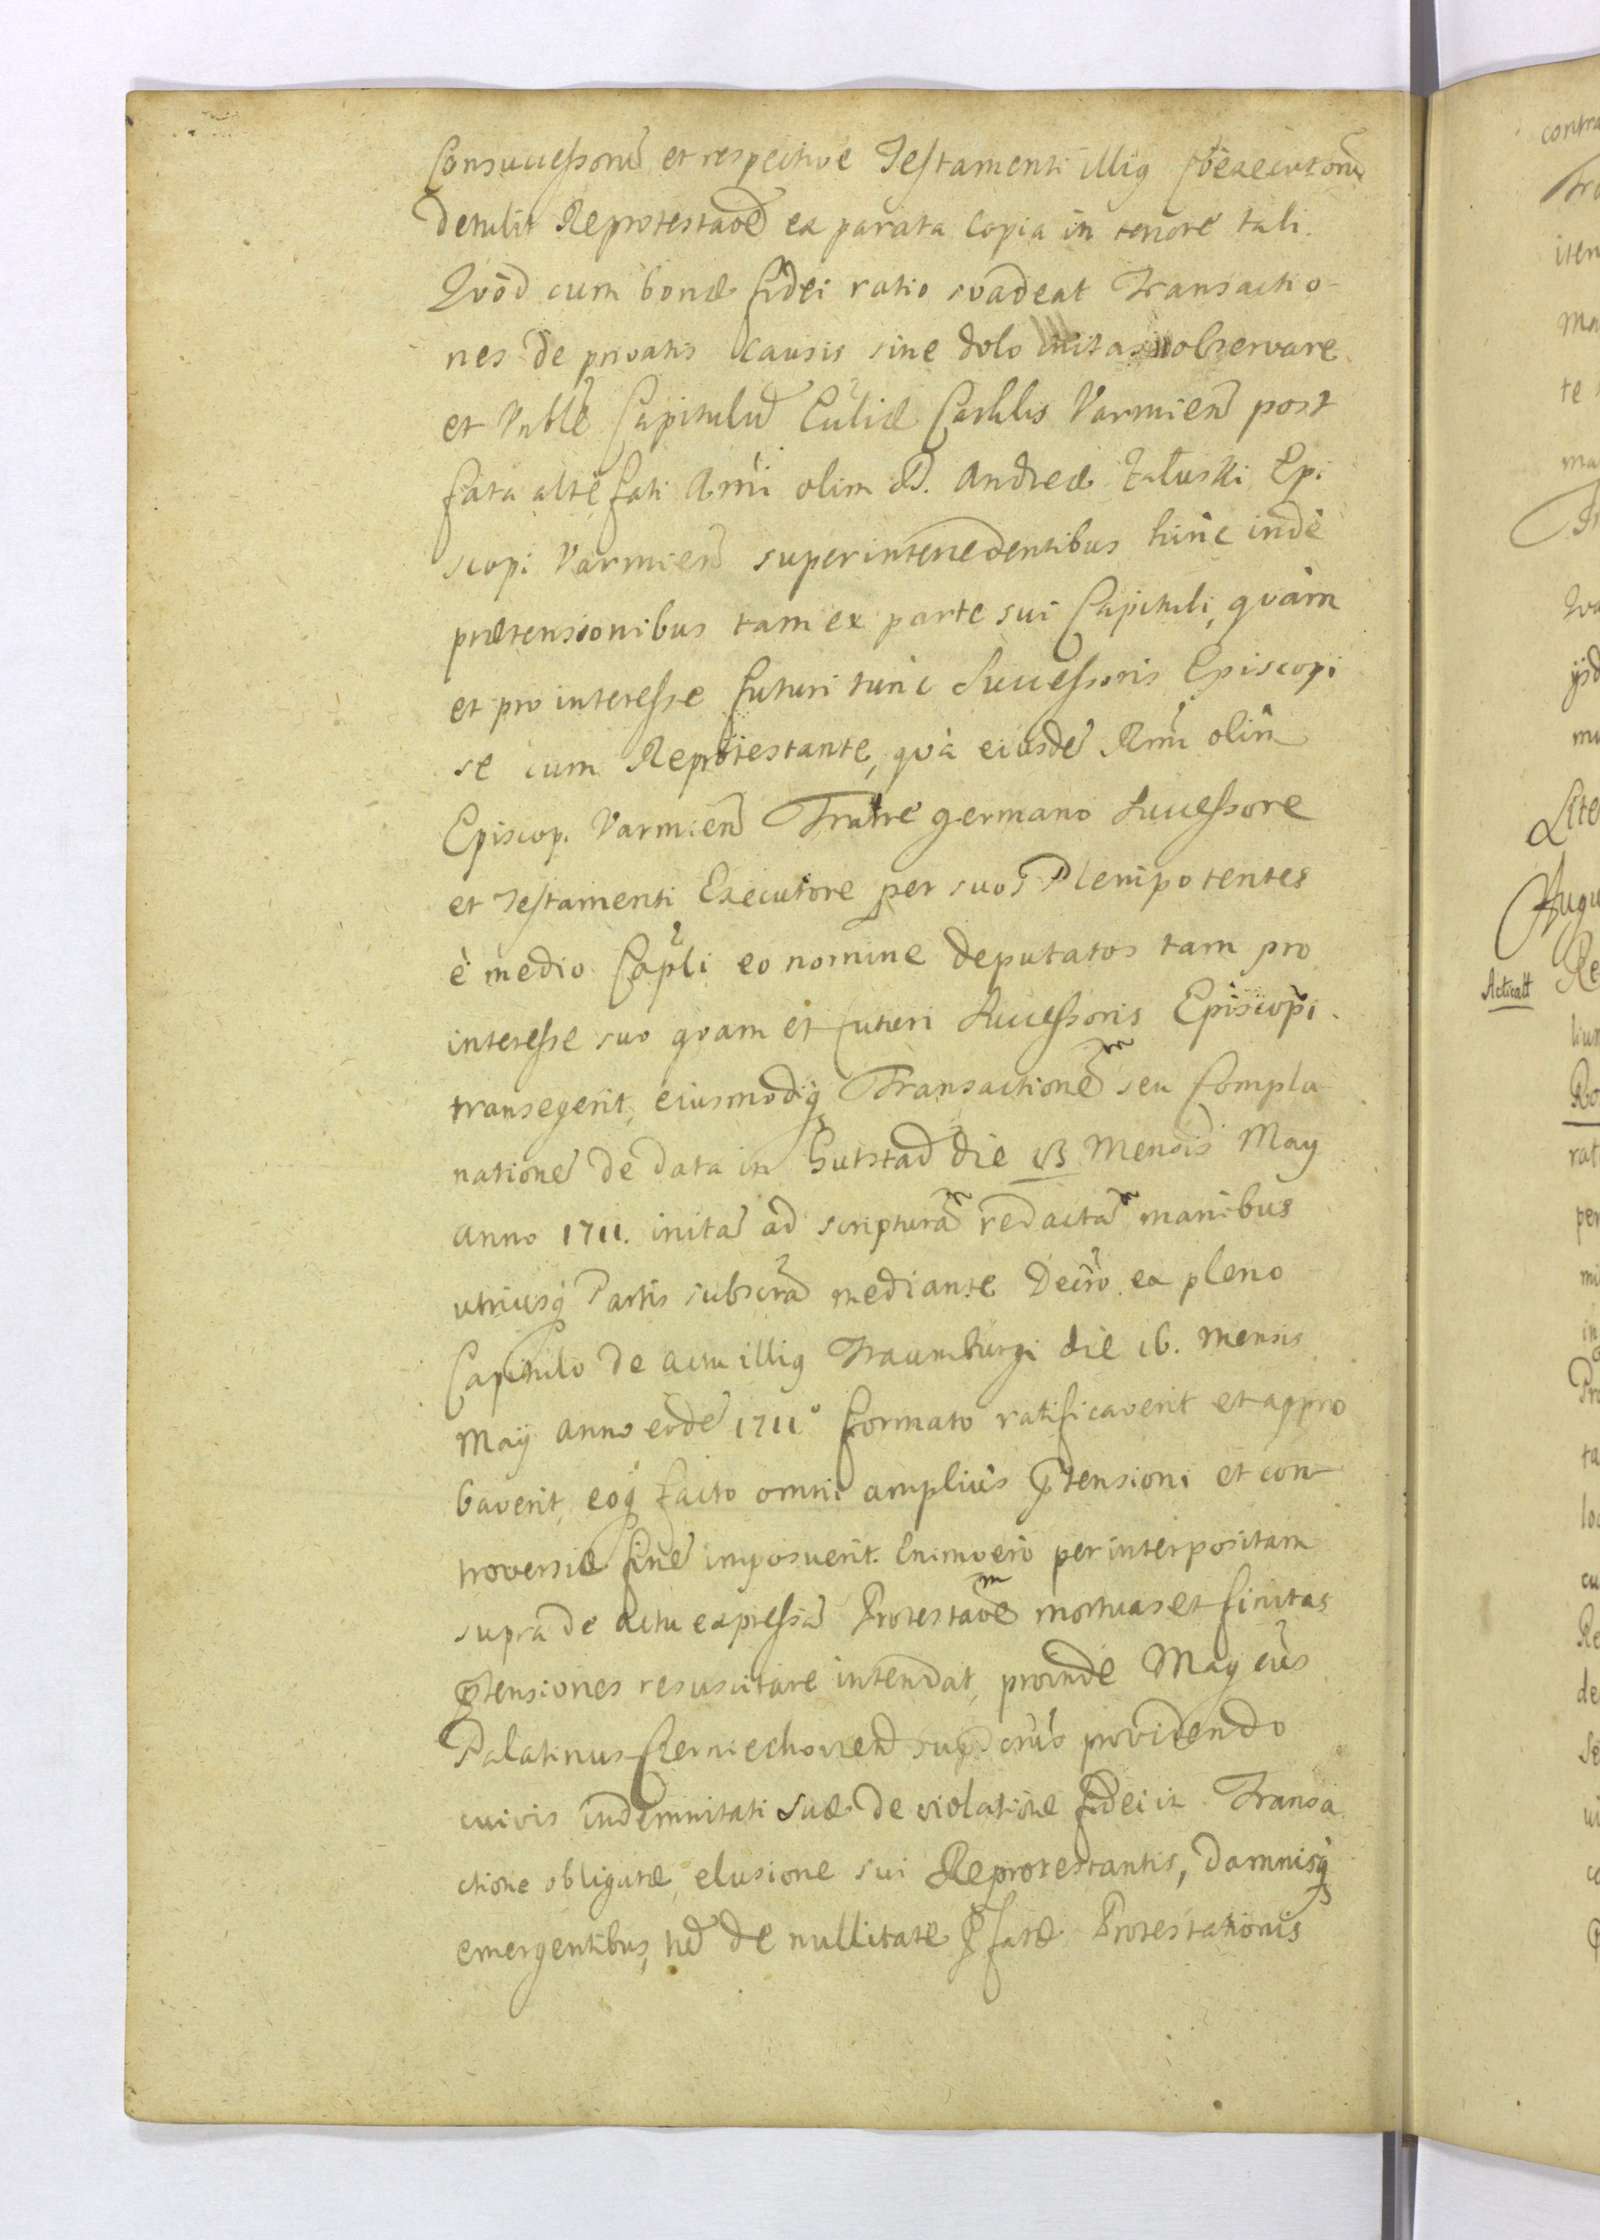 Consuccessorũ et respectivè Testamenti illiq Coexecutorũ
detulit Reprotestaõẽ ex parata Copia in tenore tali.
Qvòd cum bonæ fidei ratio svadeat Transactio-
nes de privatis Causis sine dolo initas observare
et Vnble Capitulũ Ecu͠liæ Cathlis Varmieñ post
fata altè fati Rm̃i olim D. Andreæ Załuski Epi
scopi Varmieñ superintenedentibus hinc indè
prætensionibus tam ex parte sui Capituli, qvàm
et pro interesse futuri tunc Successoris Episcopi
se cum Reprotestante, qvà eiusdẽ Rm̃i olim
Episcop. Varmieñ Fratre germano Successore
et Testamenti Executore per suos Plenipotentes
è medio Cap̃li eo nomine deputatos tam pro
interesse suo qvam et futuri Successoris Episcopi.
transegerit, eiusmodiq Transactionẽ seu Compla
nationẽ de data in Gutstad die 13 Mensis May
Anno 1711. initã ad scripturã redactã manibus
utriusq Partis subscrã mediante Decr̃o ex pleno
Capitulo de actu illiq Fraumburgi die 16. Mensis
Maÿ Anno eodẽ 1711° formato ratificaverit et appro
baverit, eoq facto omni amplius Ptensioni et con
troversiæ finẽ imposuerit. Enimvero per interpositam
supra de actu expressã Protestaõẽ mortuas et finitas
Ptensiones resuscitare intendat, proinde Mag eus
Palatinus Czerniechovieñ sup͠ om̃is providendo
cuivis indemnitati suæ de violatione fidei in Transa
ctione obligatæ, elusione sui Reprotestantis, Damnisq
emergentibus, nẽ de nullitate Pfatæ Protestationis